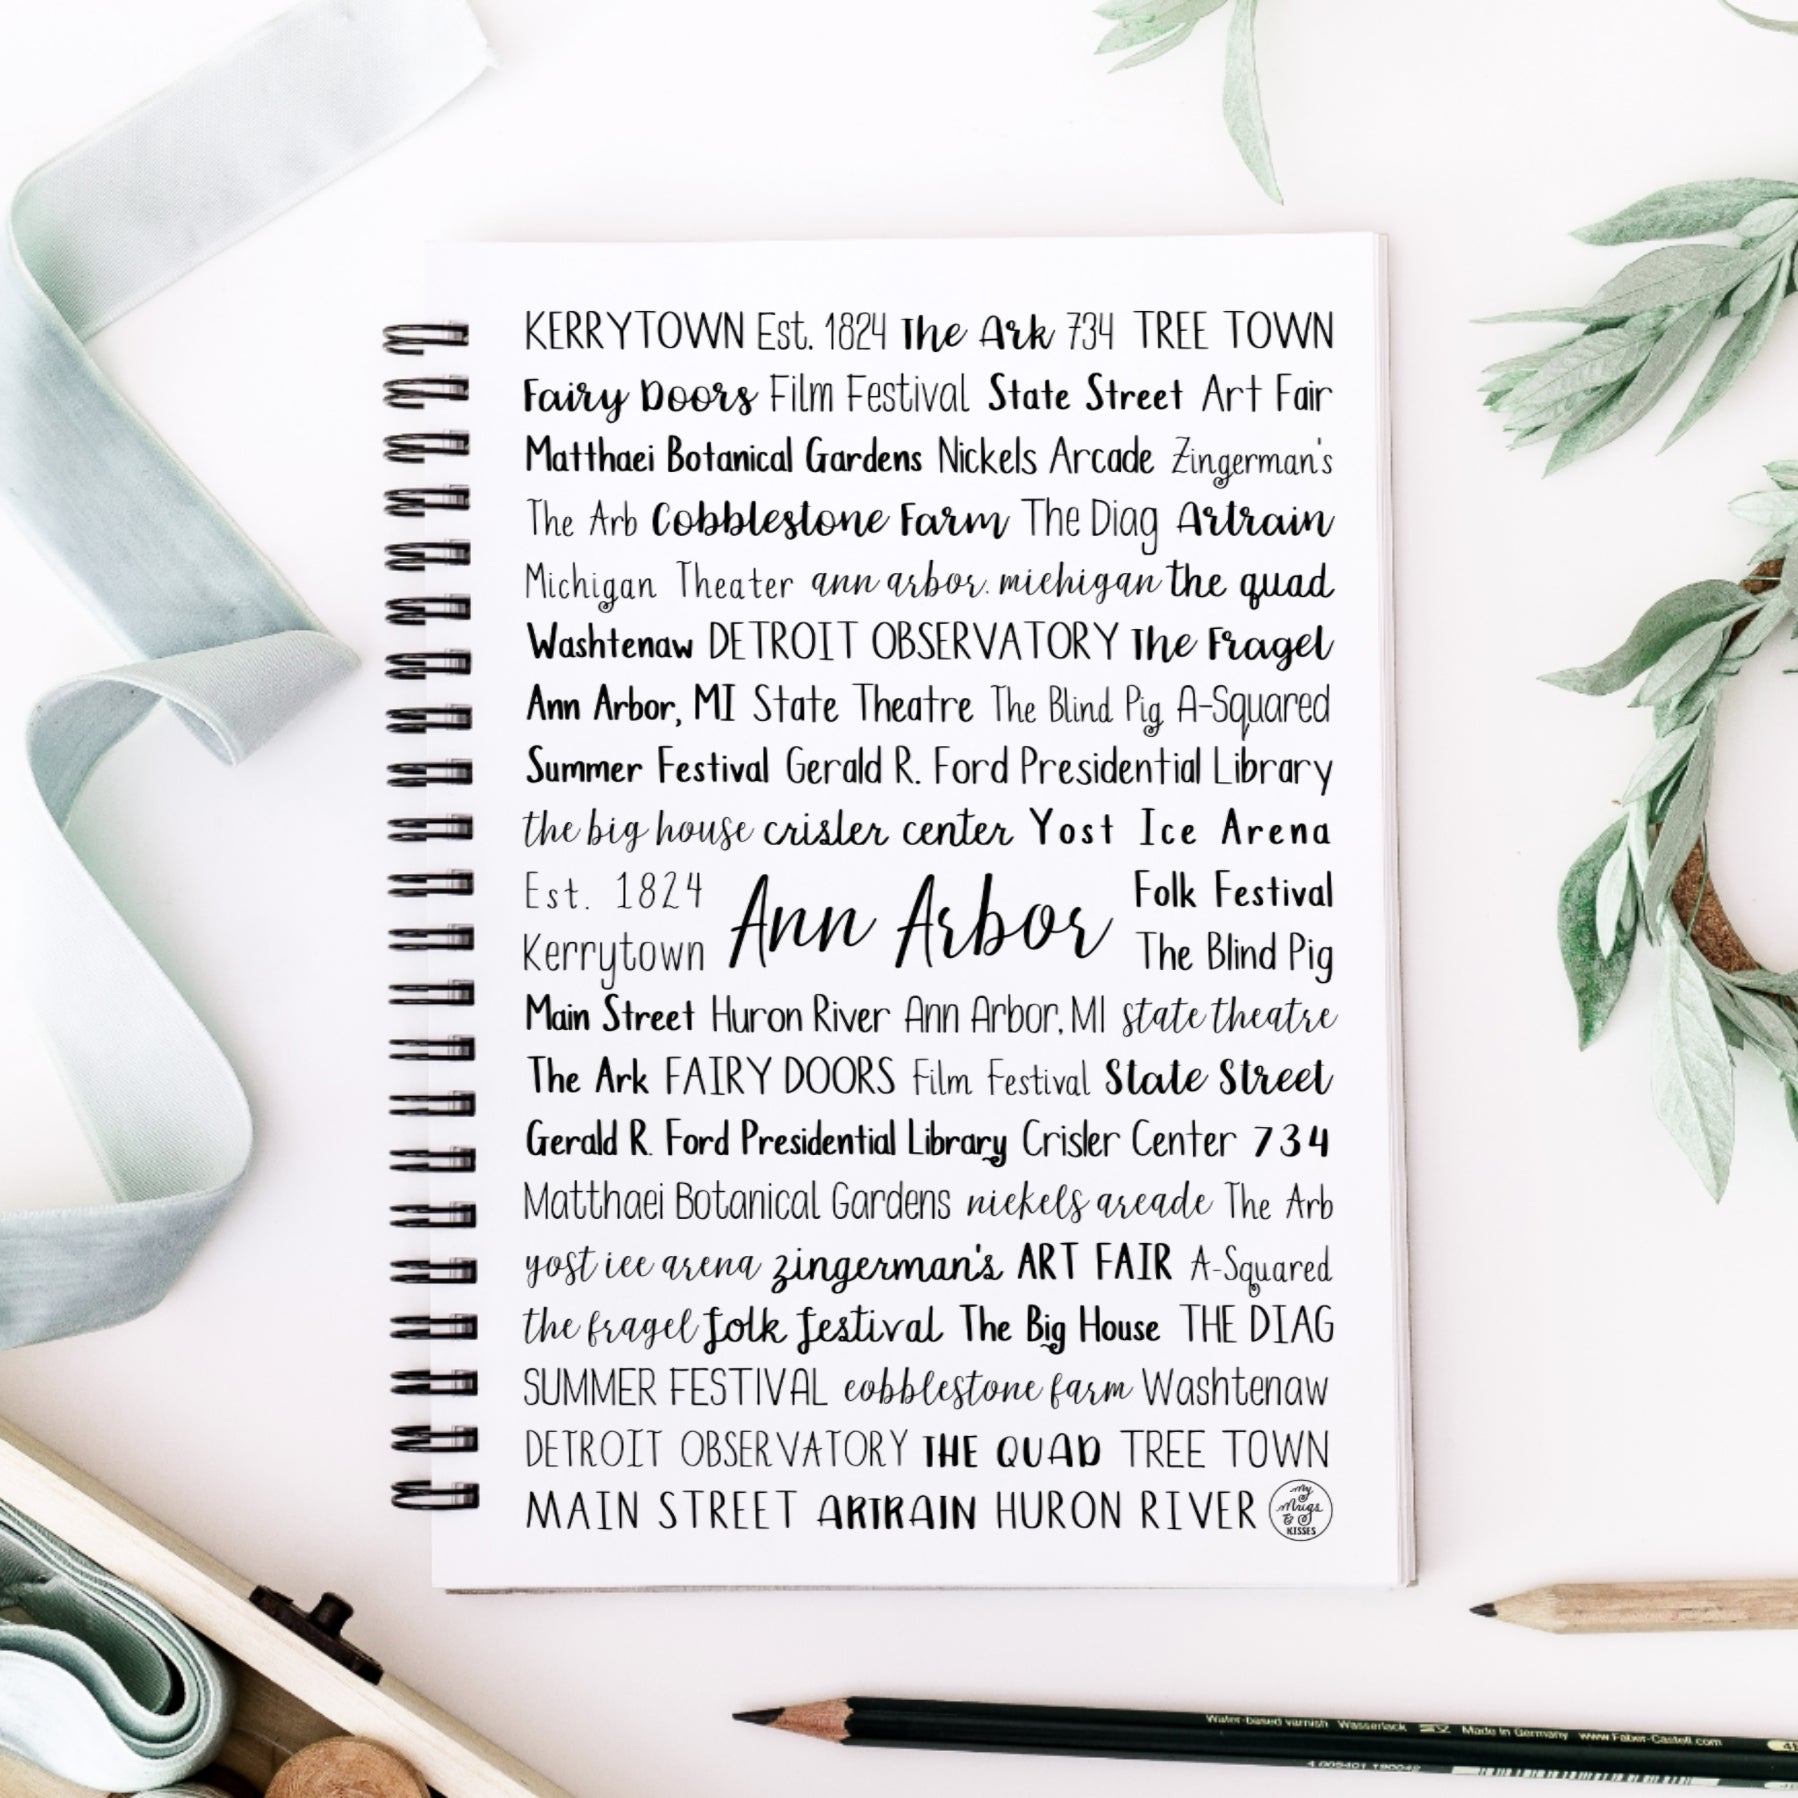 KERRYTOWN Est. 1824 The Ark 734 TREE TOWN
Fairy Doors Film Festival State Street Art Fair
Matthaei Botanical Gardens Nickels Arcade Zingerman's
The Arb Cobblestone Farm The Diag Artrain
Michigan Theater ann arbor. michigan the quad
Washtenaw DETROIT OBSERVATORY The Fragel
Ann Arbor, MI State Theatre The Blind Pig A-Squared
Summer Festival Gerald R. Ford Presidential Library
the big house crisler center Yost Ice Arena
Est. 1824 Ann Arbor Folk Festival
Kerrytown The Blind Pig
Main Street Huron River Ann Arbor, MI state theatre
The Ark FAIRY DOORS Film Festival State Street
Gerald R. Ford Presidential Library Crisler Center 734
Matthaei Botanical Gardens nickels arcade The Arb
yost ice arena zingerman's ART FAIR A-Squared
the fragel folk festival The Big House THE DIAG
SUMMER FESTIVAL cobblestone farm Washtenaw
DETROIT OBSERVATORY THE QUAD TREE TOWN
MAIN STREET ARTRAIN HURON RIVER
My
Mugs
&
KISSES
Water-based varnish Wasserlack Made in Germany www.Faber-Castell.com
4 005401 190042